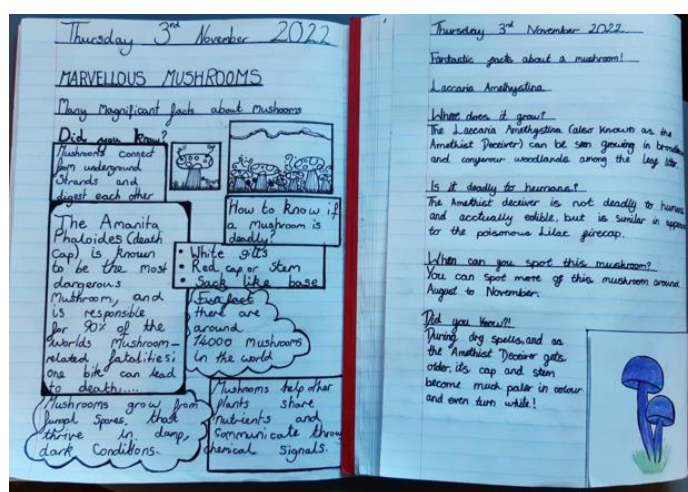 Thursday 3rd November 2022
MARVELLOUS MUSHROOMS
Many Magnificant facts about Mushrooms
Did you know?
Mushrooms connect
from underground
Strands and
digest each other
How to know if
a mushroom is
deadly!
• White gills
• Red cap or stem
• Sack like base
The Amanita
Phaloides (death
Cap) is known
to be the most
dangerous
Mushroom, and
is responsible
for 90% of the
worlds Mushroom-
related fatalities;
one bite can lead
to death.....
Fun fact
there are
around
14000 mushrooms
in the world
Mushrooms grow from
fungal spores, that
thrive in damp,
dark Conditions.
Mushrooms help other
plants share
nutrients and
Communicate through
chemical signals.
Thursday 3rd November 2022
Fantastic facts about a mushroom!
Laccaria Amethystina
Where does it grow?
The Laccaria Amethystina (also known as the
Amethist Deceiver) can be seen growing in
and woodlands among the leaf litter.
Is it deadly to humans?
The Amethist deceiver is not deadly to humans
and acctually edible, but is similar in
to the poisonous Lilac firecap.
When can you spot this mushroom?
You can spot more of this mushroom around
August to November.
Did you Know?!
During dry spells, and as
the Amethist Deceiver gets
older, its cap and stem
become much paler in colour
and even turn white!